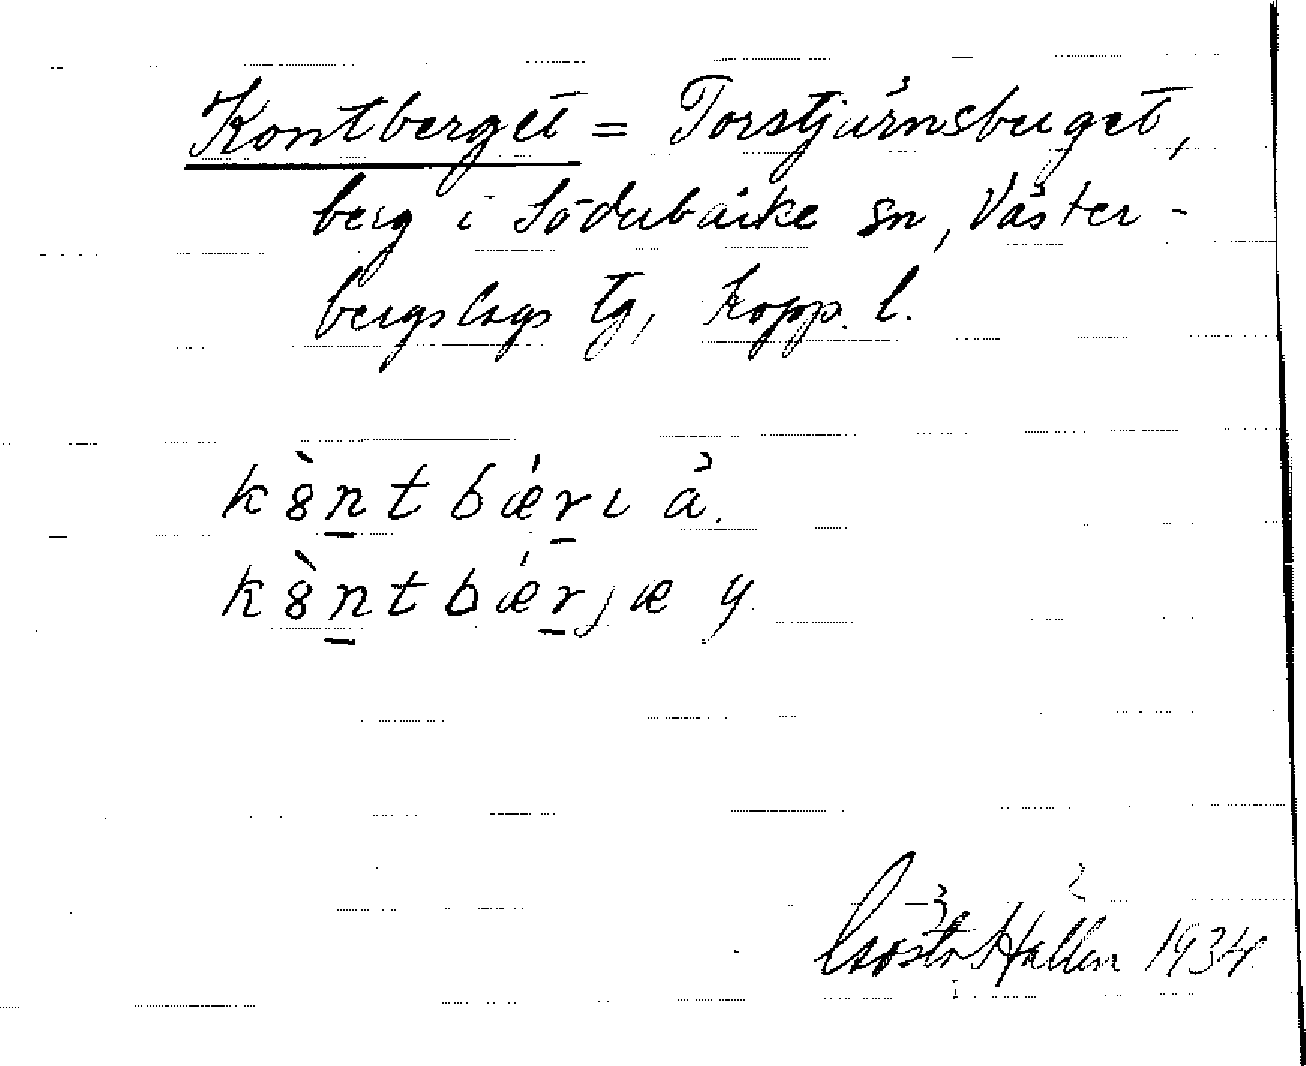 Kontberget = Torstjärnsberget,
berg i Söderbärke sn, Väster-
bergslags tg, Kopp. l.
kȍntbærı å.
kȍntbærjæ y.
Gösta Hållén 1934